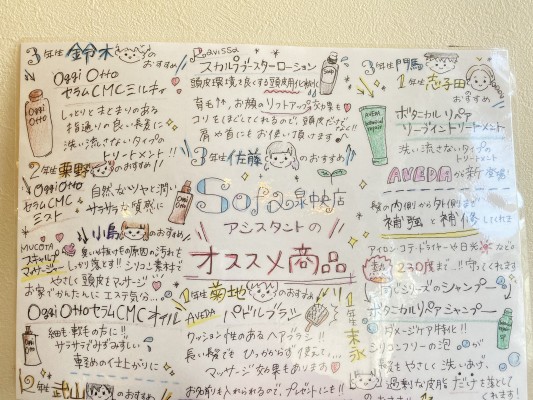 3年生 鈴木 のおすすめ
Oggi Otto
セラムCMCミルティ
しっとりとまとまりのある
指通りの良い長さに
洗い流さないタイプの
トリートメント!!
2年生 栗野 のおすすめ!!
Oggi Otto
セラムCMC
ミスト
自然なツヤと潤い
サラサラな質感に
小島 のおすすめ
MUCOTA
スキャルプ
マッサージャー
臭いや抜けもの原因の汚れを
しっかり落とす!! シリコン素材で
やさしく頭皮をマッサージ
お家でかんたんにエステ気分…
Oggi OttoセラムCMCオイル
細毛 軟毛の方に!!
サラサラみずみずしい
軽めの仕上がりに
2年生 武山 のおすすめ
Lavissa
スカルプブースターローション
頭皮環境を良くする頭皮用化粧水
育毛、お顔のリフトアップ効果も
コリをほぐしてくれるので、頭皮だけでなく
肩や首にもお使い頂けます
3年生 佐藤 のおすすめ!!
Sofa 泉中央店
アシスタントの
オススメ商品
1年生 菊地 のおすすめ
AVEDA パドルブラシ
クッション性のあるヘアブラシ!!
長い髪でも ひっかからず使えて、
マッサージ効果もあります
お名前も入れられるので、プレゼントにも!!
3年生 門馬
1年生 志子田 の
おすすめ
ボタニカルリペア
リーブイントリートメント
洗い流さないタイプの
トリートメント
AVEDAが新登場!
髪の内側から外側まで
補強と補修してくれます
アイロン・コテ・ドライヤーや日光などの
熱 230度まで…!!守ってくれます
1年生 末永
シリーズのシャンプー
ボタニカルリペアシャンプー
ダメージケア特化!!
シリコンフリーの泡が
髪をやさしく洗いあげ、
過剰な皮脂だけを落として
くれます!